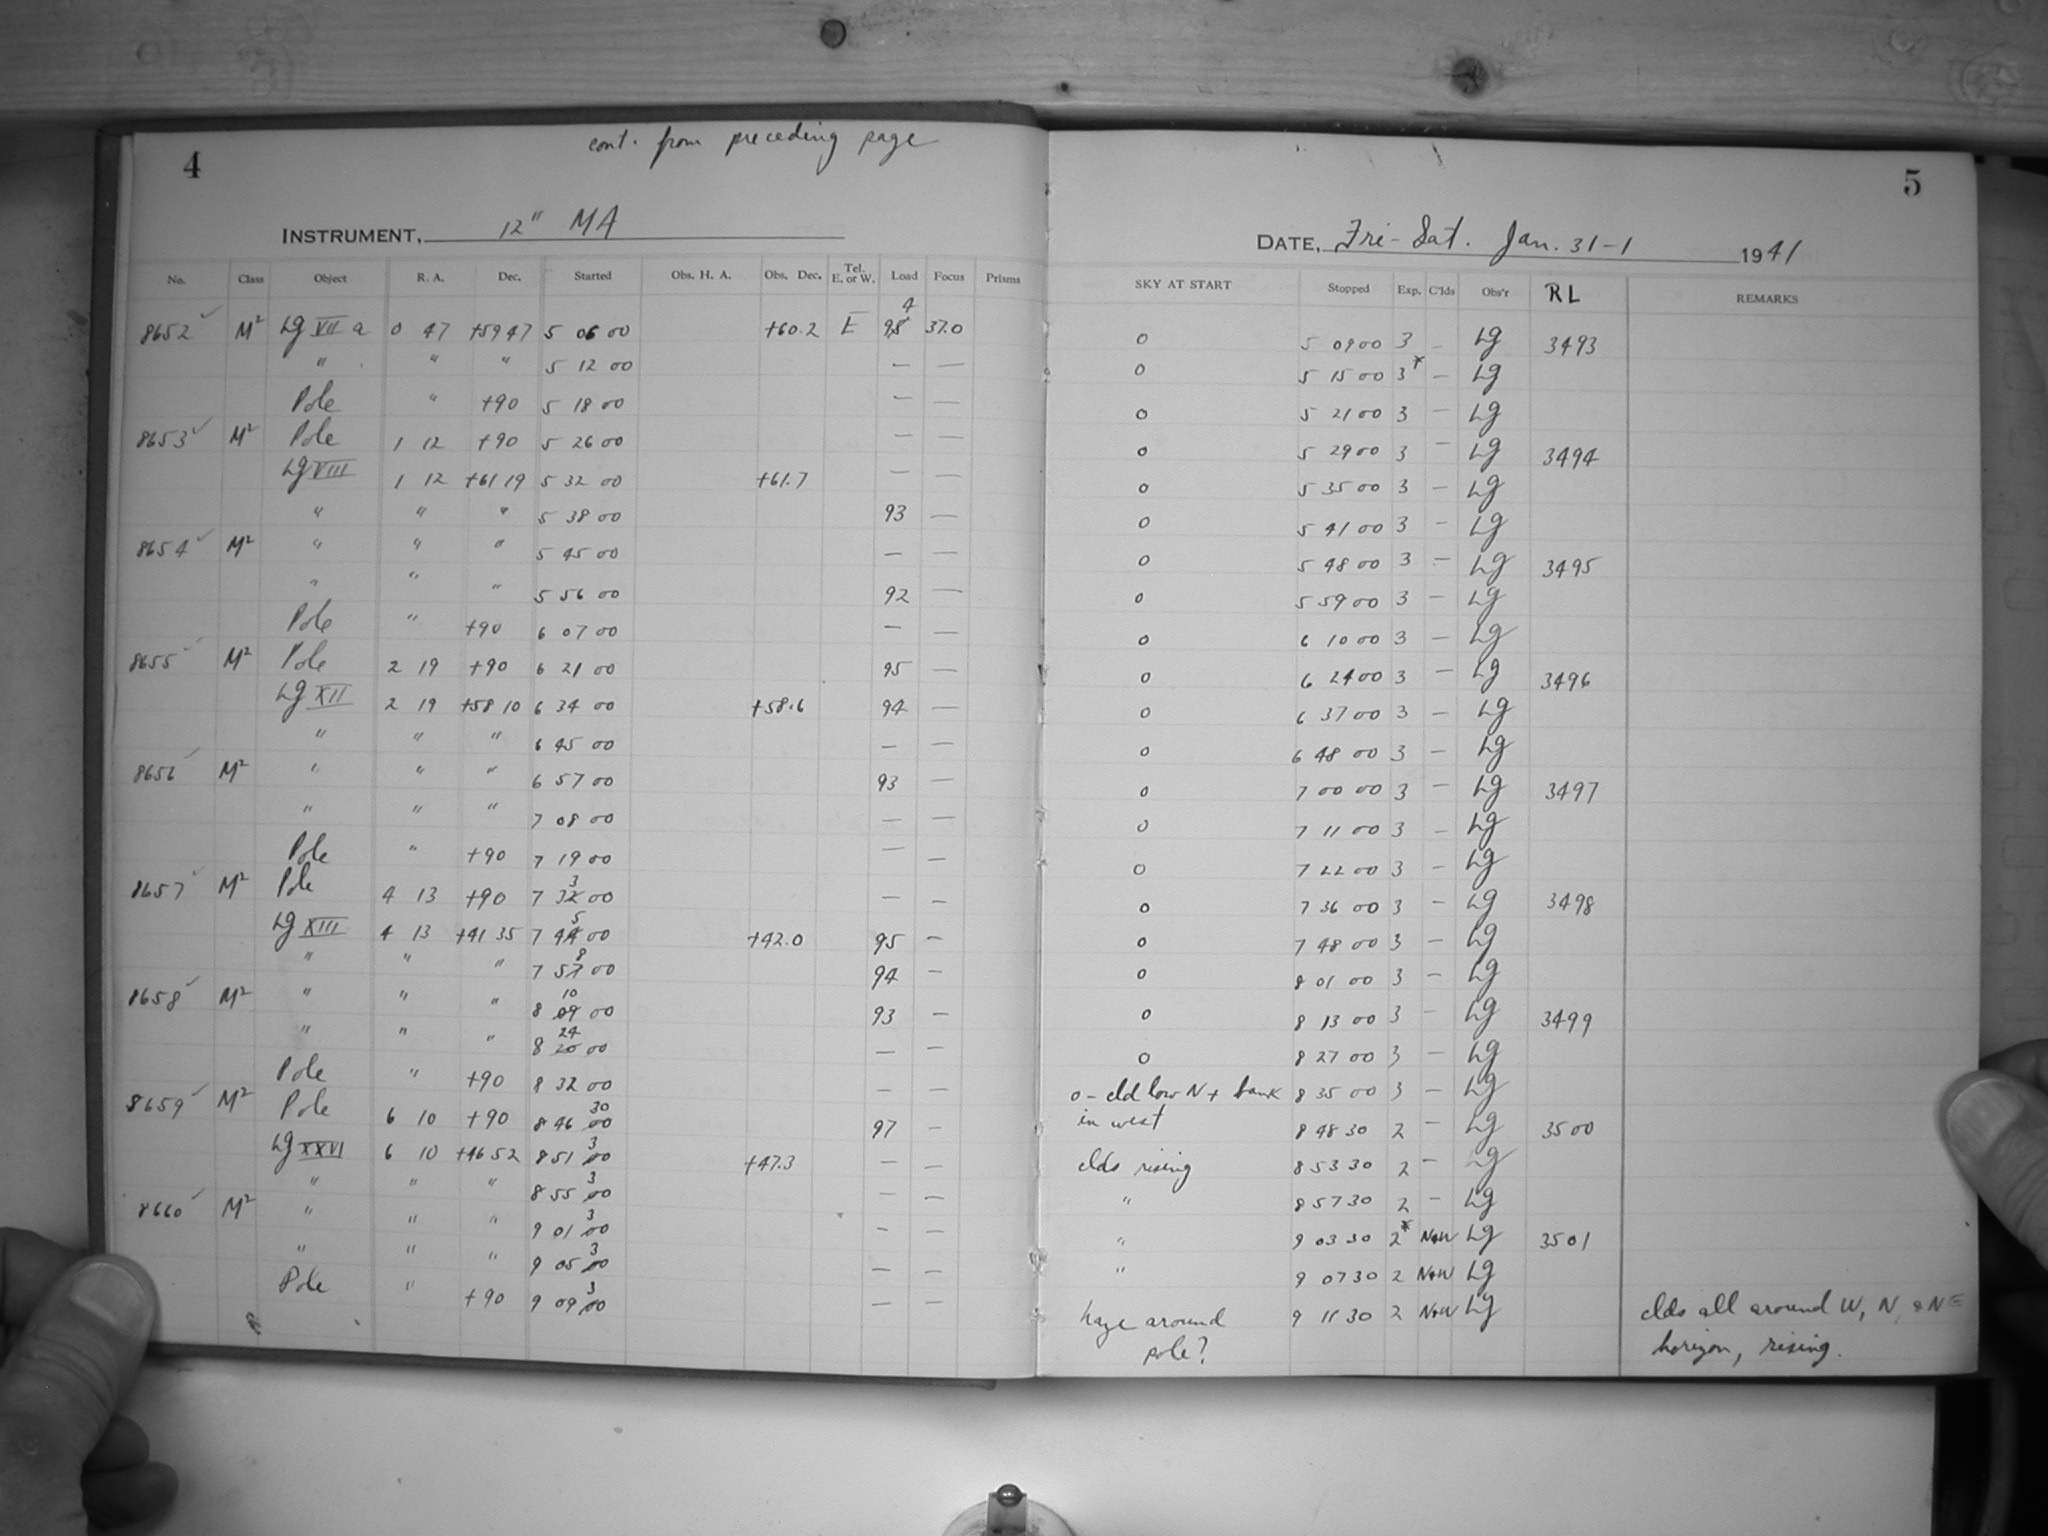 cont. from preceding page
4
INSTRUMENT, 12" MA
No. Class Object R. A. Dec. Started Obs. H. A. Obs. Dec. Tel. E. or W. Load Focus Prisms
8652 ✓ M² Lg VII a 0 47 +59 47 5 06 00 +60.2 E 984 37.0
" " " 5 12 00 — —
Pole " +90 5 18 00 — —
8653 ✓ M² Pole 1 12 +90 5 26 00 — —
Lg VIII 1 12 +61 19 5 32 00 +61.7 — —
" " " 5 38 00 93 —
8654 ✓ M² " " " 5 45 00 — —
" " " 5 56 00 92 —
Pole " +90 6 07 00 — —
8655 ✓ M² Pole 2 19 +90 6 21 00 95 —
Lg XII 2 19 +58 10 6 34 00 +58.6 94 —
" " " 6 45 00 — —
8656 ✓ M² " " " 6 57 00 93 —
" " " 7 08 00 — —
Pole " +90 7 19 00 — —
8657 ✓ M² Pole 4 13 +90 7 33 00 — —
Lg XIII 4 13 +41 35 7 45 00 +42.0 95 —
" " " 7 58 00 94 —
8658 ✓ M² " " " 8 10 00 93 —
" " " 8 24 00 — —
Pole " +90 8 32 00 — —
8659 ✓ M² Pole 6 10 +90 8 46 30 97 —
Lg XXVI 6 10 +46 52 8 51 30 +47.3 — —
" " " 8 55 30 — —
8660 ✓ M² " " " 9 01 30 — —
" " " 9 05 30 — —
Pole " +90 9 09 30 — —
5
DATE, Fri-Sat. Jan. 31-1 1941
SKY AT START Stopped Exp. C'lds Obs'r RL REMARKS
0 5 09 00 3 — Lg 3493
0 5 15 00 3* — Lg
0 5 21 00 3 — Lg
0 5 29 00 3 — Lg 3494
0 5 35 00 3 — Lg
0 5 41 00 3 — Lg
0 5 48 00 3 — Lg 3495
0 5 59 00 3 — Lg
0 6 10 00 3 — Lg
0 6 24 00 3 — Lg 3496
0 6 37 00 3 — Lg
0 6 48 00 3 — Lg
0 7 00 00 3 — Lg 3497
0 7 11 00 3 — Lg
0 7 22 00 3 — Lg
0 7 36 00 3 — Lg 3498
0 7 48 00 3 — Lg
0 8 01 00 3 — Lg
0 8 13 00 3 — Lg 3499
0 8 27 00 3 — Lg
0 - cld low N + bank 8 35 00 3 — Lg
in west 8 48 30 2 — Lg 3500
clds rising 8 53 30 2 — Lg
" 8 57 30 2 — Lg
" 9 03 30 2* N+W Lg 3501
" 9 07 30 2 N+W Lg
haze around 9 11 30 2 N+W Lg clds all around W, N, + NE
pole? horizon, rising.